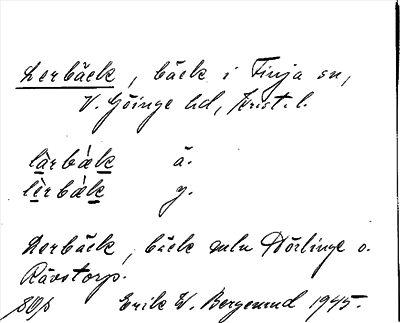 Lerbäck, bäck i Finja sn,
V. Göinge hd, Krist. l.
làrbä́k ä.
lèrbä́k y.
Lerbäck, bäck mln Hörlinge o.
Rävstorp.
Erik W. Bergenud 1945.